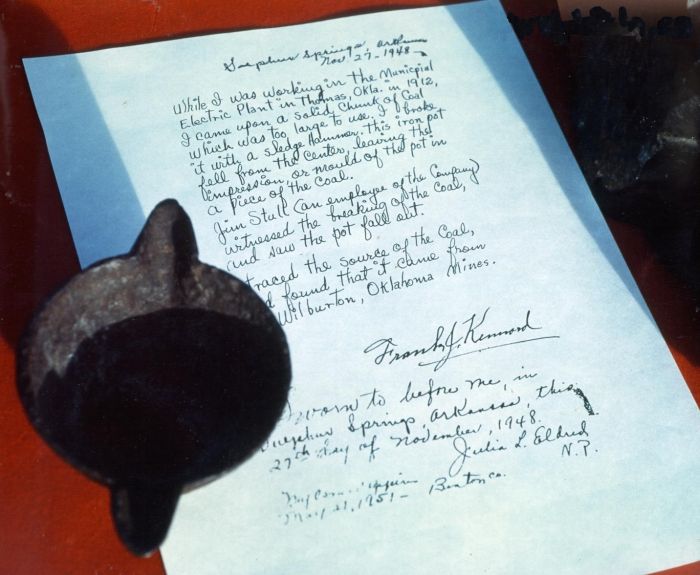 Sulphur Springs, Arkansas
Nov. 27, 1948
While I was working in the Municpial
Electric Plant in Thomas, Okla. in 1912,
I came upon a solid chunk of Coal
which was too large to use. I broke
it with a sledge Hammer. This iron pot
fell from the center, leaving the
impression, or mould of the pot in
a piece of the coal.
Jim Stull (an employee of the Company)
witnessed the breaking of the coal,
and saw the pot fall out.
traced the source of the Coal,
found that it came from
Wilburton, Oklahoma Mines.
Frank J. Kennard
Sworn to before me, in
Sulphur Springs, Arkansas, this
27th day of November, 1948.
Julia L. Eldred
N.P.
My Com expires
May 21, 1951 - Benton Co.